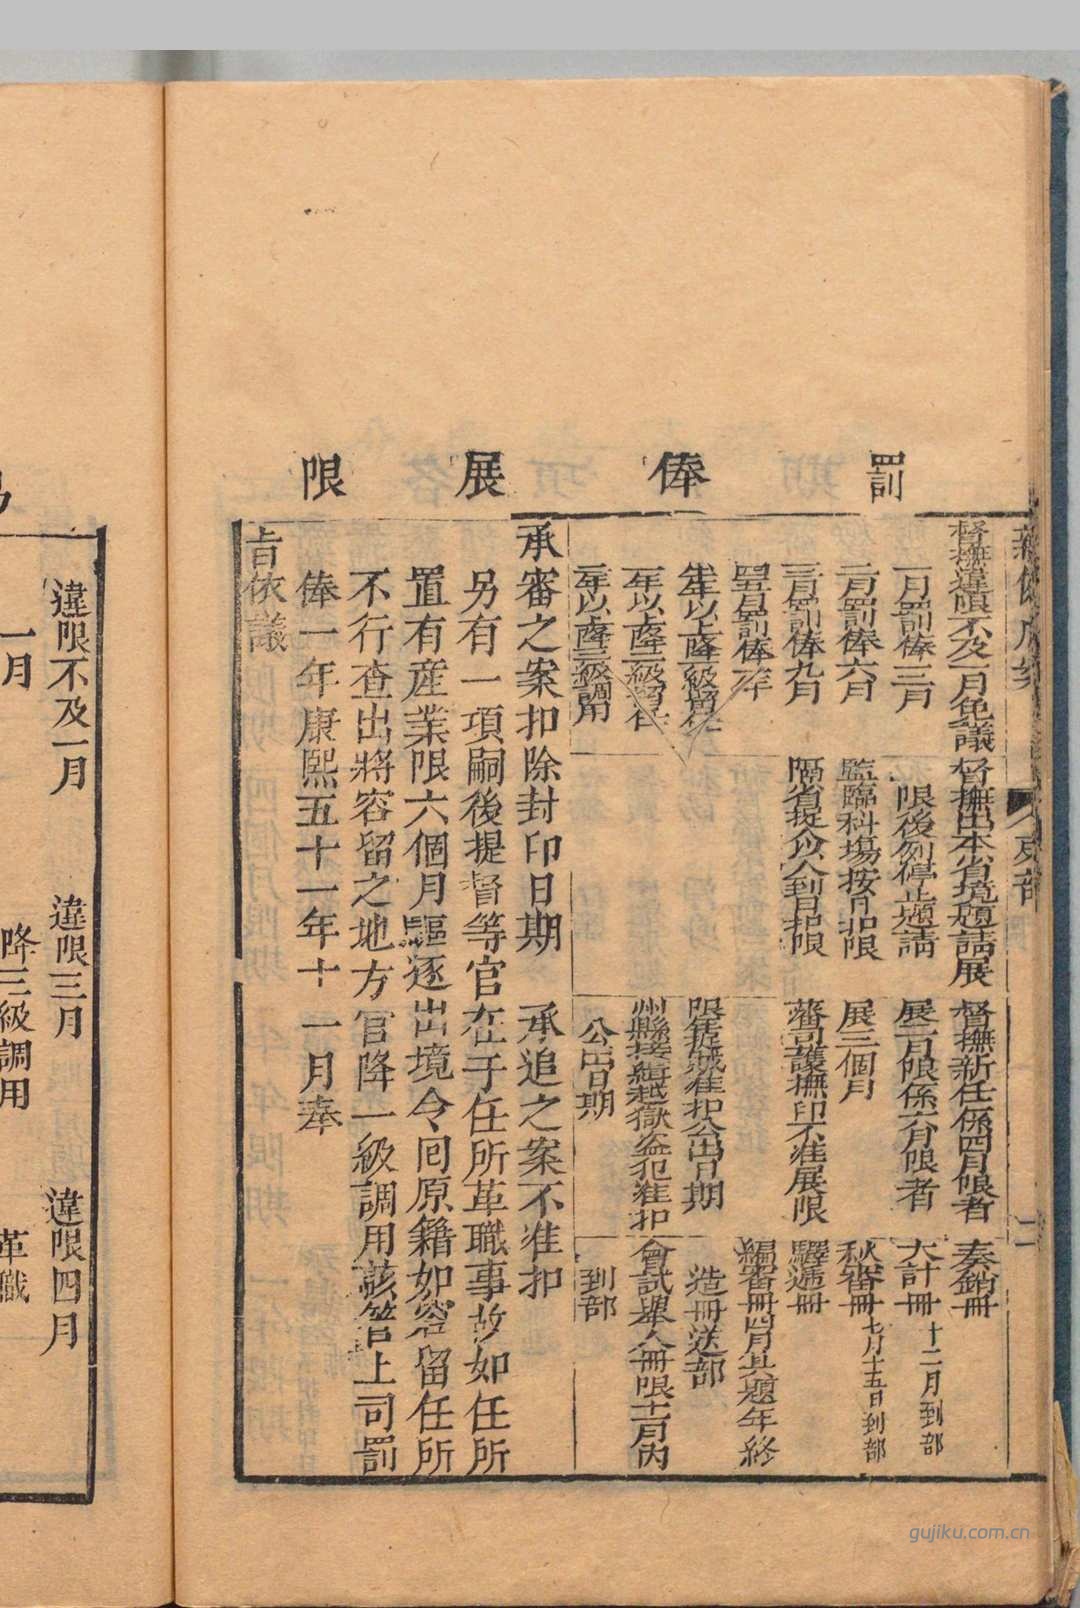 罰俸展限
督撫違限不及一月免議
一月罰俸三月
二月罰俸六月
三月罰俸九月
四五月罰俸一年
半年以上降一級留任
一年以上降二級留任
二年以上降三級調用
督撫出本省境題請展
限後列停止題請
監臨科場按月扣限
隔省提僉人到日扣限
督撫新任係四月限者
展二月限係六月限者
展三個月
藩司護撫印不准展限
限隹城准扣公出日期
州縣接緝越獄盜犯准扣
公出日期
奏銷冊
大計冊十二月到部
秋審冊七月十五日到部
驛遞冊
編審冊四月具題年終
造冊送部
會試舉人冊限十二月內
到部
承審之案扣除封印日期　承追之案不准扣
另有一項嗣後提督等官在于任所革職事故如任所
置有産業限六個月驅逐出境令囘原籍如容留任所
不行查出將容留之地方官降一級調用該管上司罰
俸一年康熙五十一年十一月奉
旨依議
吏部
二
違限不及一月
違限三月
違限四月
一月
降三級調用
革職
gujiku.com.cn